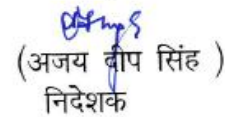 (अजय दीप सिंह )
निदेशक